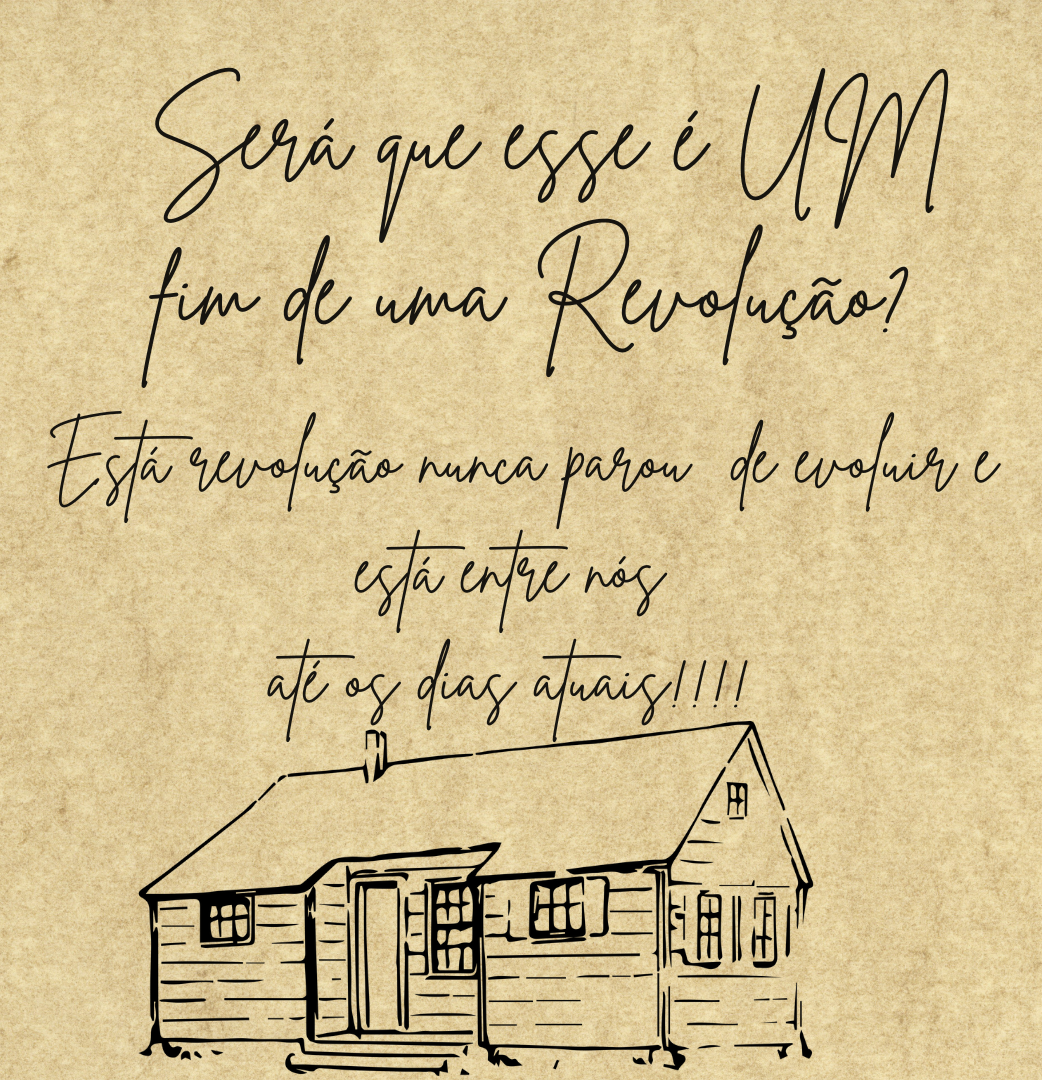 Será que esse é UM
fim de uma Revolução?
Está revolução nunca parou de evoluir e
está entre nós
até os dias atuais!!!!